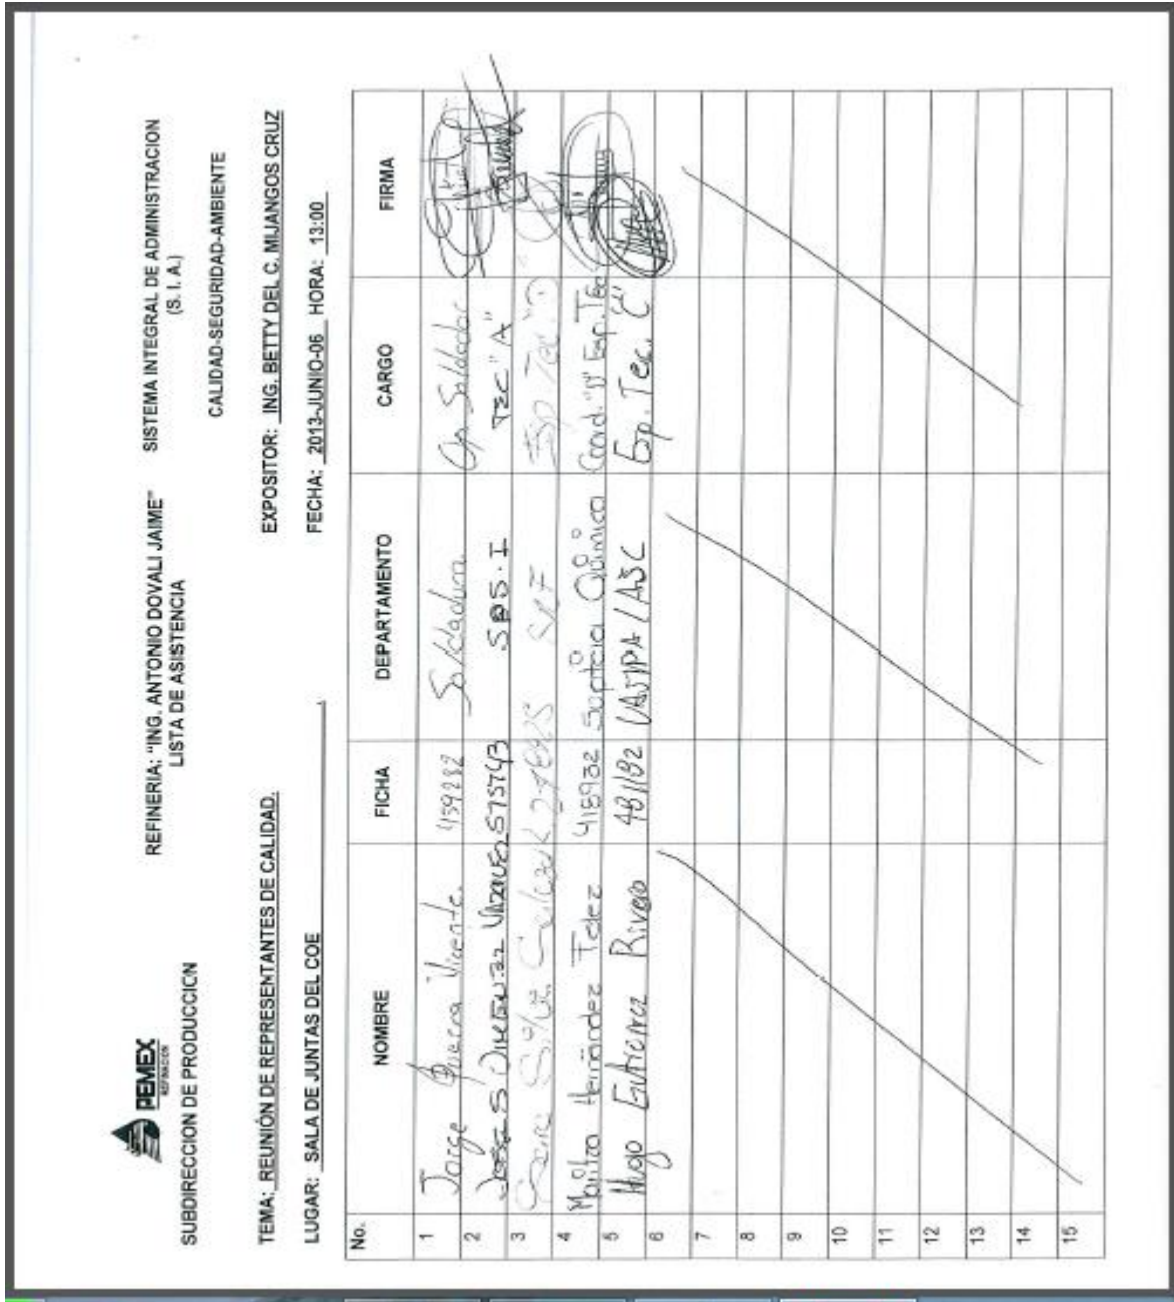 PEMEX
REFINACION
SUBDIRECCION DE PRODUCCION
REFINERIA: "ING. ANTONIO DOVALI JAIME"
LISTA DE ASISTENCIA
SISTEMA INTEGRAL DE ADMINISTRACION
(S. I. A.)
CALIDAD-SEGURIDAD-AMBIENTE
TEMA: REUNIÓN DE REPRESENTANTES DE CALIDAD.
EXPOSITOR: ING. BETTY DEL C. MIJANGOS CRUZ
LUGAR: SALA DE JUNTAS DEL COE
FECHA: 2013-JUNIO-06 HORA: 13:00
No. NOMBRE FICHA DEPARTAMENTO CARGO FIRMA
1 Jorge Guerra Vicente. 459282 Soldadura. Op. Soldador
2 JIMENEZ VAZQUEZ 575743 TEC "A"
3 Esp Tec "D"
4 Hernández 418932 Química Coord. "D" Esp. Tec
5 Hugo Rivero 481192 Esp. Tec. "C"
6
7
8
9
10
11
12
13
14
15